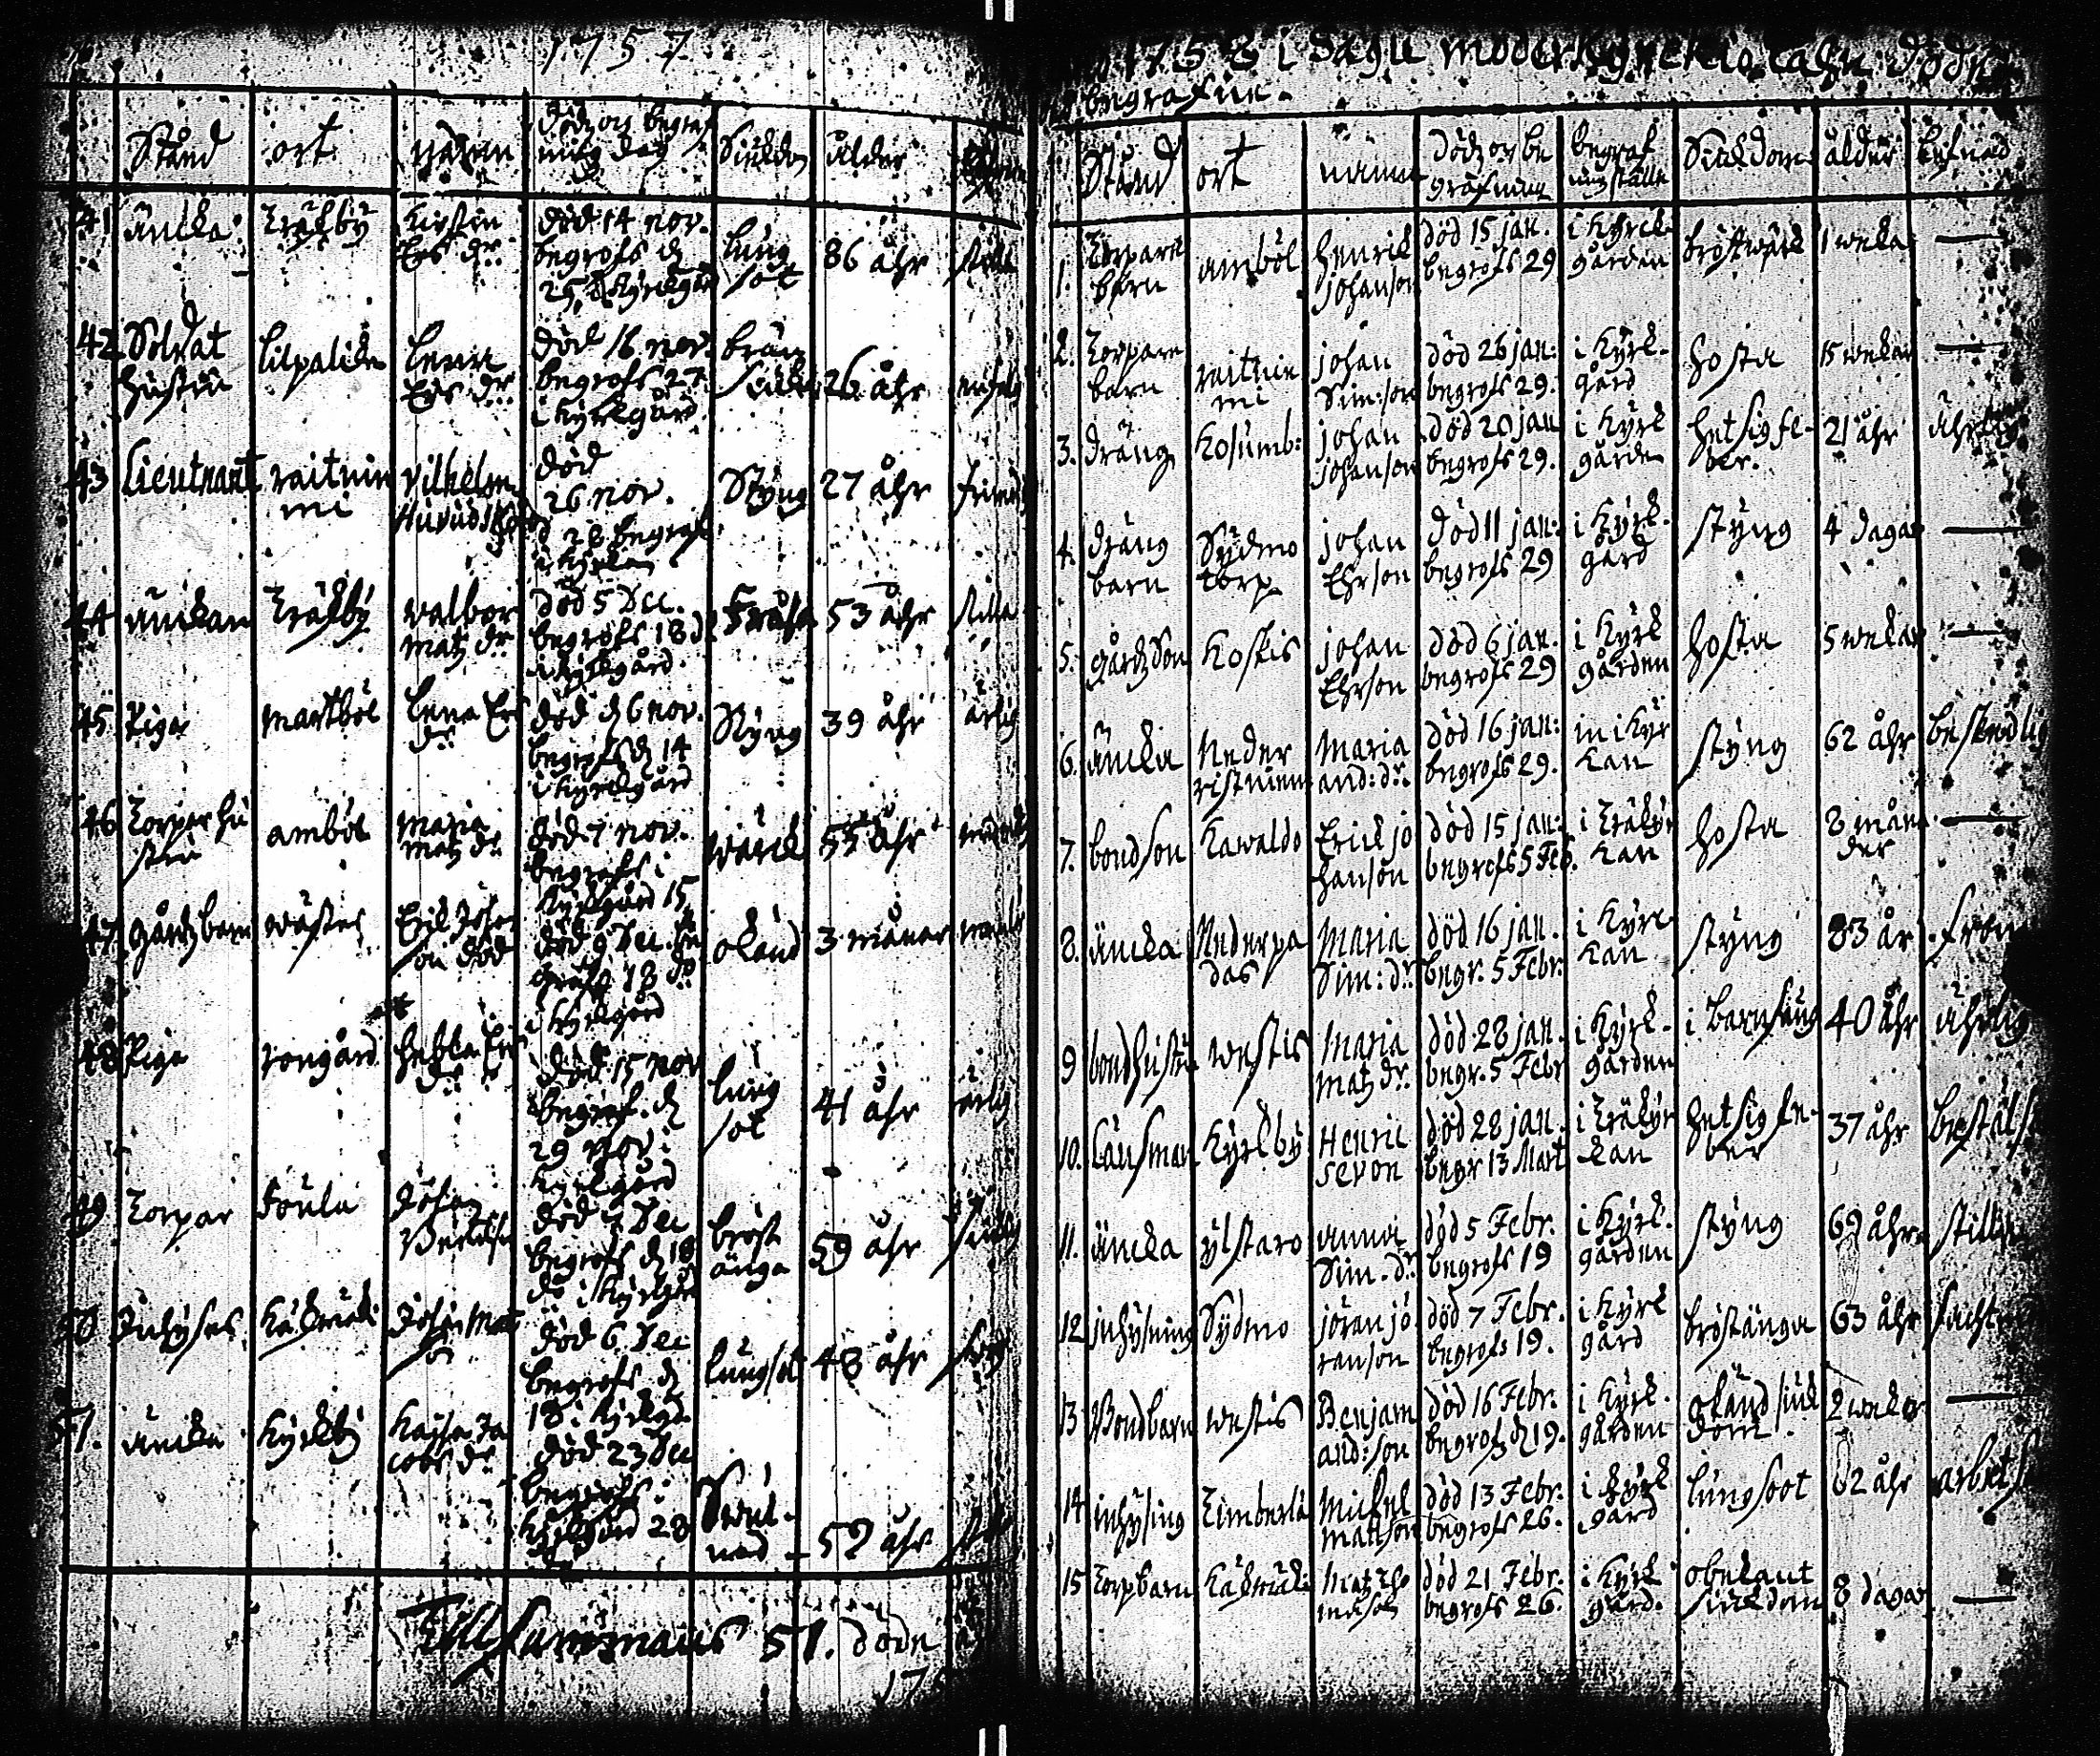 1757
Stånd ort namn Död och begraf
ning dag Siukdom ålder
41 änckia Träskby Kirstin
Ers dr. död 14 nov.
begrofs d
25 i Kyrckgård lung
sot 86 åhr stilla
42 Soldat
hustru Lilpalika Lena
Ers dr. död 16 nov.
begrofs 27
i Kyrkgård brän
siuka 26 åhr
43 Lieutnant raitnie
mi Vilhelm
död
26 nov.
d 28 begrof
i Kyrkan Styng 27 åhr
44 änckan Träskby valbor
mats dr död 5 Dec.
begrofs 18 d
i Kyrkgård 53 åhr stilla
45 Piga martböl Lena Ers
dr död d 6 nov.
begrofs d 14
i Kyrckgård Styng 39 åhr ärlig
46 Torpar hu
stru amböl Maria
mats dr. död 7 nov.
begrofs i
Kyrkgård 15 wärck 55 åhr
47 gårdz barn wästes Erik Johan
son död död 9 Dec. be
grofs 18 do
i Kyrkgård okänd 3 månar
48 Piga rongård Hebla Ers
dr död 15 nov
begrof. d
29 nov i
Kyrkgård lung
sot 41 åhr ärlig
49 Torpar Johan
död 7 Dec
begrofs d 18
do i Kyrkgård bröst
ånga 59 åhr
50 Inhyses Johan mats
son död 6 Dec
begrofs d
18 i Kyrkgd. lungsot 48 åhr
51. änckia Kyrkby Kaisa Ja
cobs dr. död 23 Dec
begrofs i
Kyrkgård 28 Swul-
nad 52 åhr
Tillsammans 51. döde
1758 i Sagu moder Kyrckio lagde döde
begrafne.
Stånd ort namn Död och be
gräfning begraf
ning ställe Siukdom ålder lefnad
1. Torpare
barn amböl Henrik
Johanson död 15 jan.
begrofs 29 i Kyrck
gården bröstwärk 1 weka —
2. Torpare
barn raitnie
mi johan
Sim:son död 26 jan:
begrofs 29. i Kyrk-
gård hosta 15 wekar —
3. dräng Kosumb: johan
johanson död 20 jan
begrofs 29. i Kyrk
gården hetsig fe-
ber. 21 åhr ährlig
4. dräng
barn Sydmo
torp johan
Ehrson död 11 jan:
begrofs 29 i Kyrk-
gård styng 4 dagar —
5. gårdz Son Koskis johan
Ehrson död 6 jan.
begrofs 29 i Kyrk
gården hosta 5 wekar —
6. änckia Neder
ristniemi Maria
and: dr. död 16 jan:
begrofs 29. in i Kyr
kan styng 62 åhr beskedlig
7. bondson Kawaldo Erick jo
hanson död 15 jan:
begrofs 5 Feb. i Träkyr
kan hosta 8 måna
der —
8. änckia Nederpa
das Maria
Sim: dr. död 16 jan.
begr. 5 Febr. i Kyrc
kan styng 83 år from
9 bondhustru westis Maria
mats dr. död 28 jan.
begr. 5 Febr i Kyrk-
gården i Barnsäng 40 åhr ährlig
10. Länsman Kyrkby Henric
Sevon död 28 jan.
begr 13 Mart i Träkyr
kan hetsig fe-
ber 37 åhr
11. änckia ylstaro anna
Sim. dr. död 5 Febr.
begrofs 19 i Kyrk.
gården styng 69 åhr stilla
12 inhysning Sydmo jöran jö
ranson död 7 Febr.
begrofs 19. i Kyrk
gård bröstånga 63 åhr
13 Bondbarn westis Benjam
and:son död 16 Febr.
begrofs d 19. i Kyrk.
gården okänd siuk
dom. 2 wekor —
14 inhysing Timberla Mickel
mattson död 13 Febr.
begrofs 26. i Kyrk
gård lungsoot 62 åhr
15 Torpbarn död 21 Febr.
begrofs 26. i Kyrk
gård. obekant
siukdom 8 dagar —